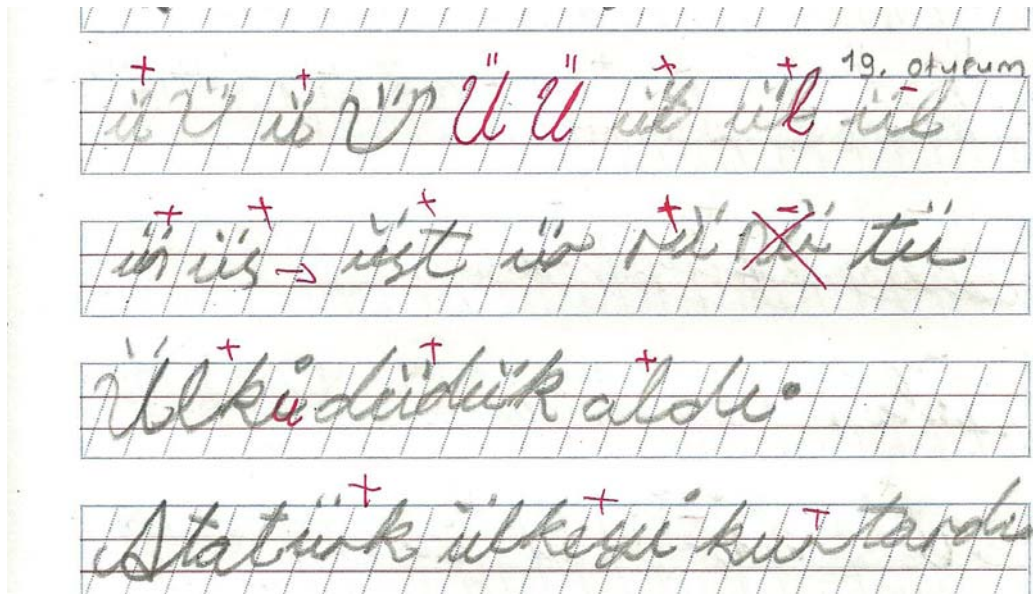 19. oturum
ü Ü ü Ü Ü Ü ük ül ül
ün üs → üst ür rü tü
Ülkü düdük aldı.
Atatürk ülkeyi kurtardı